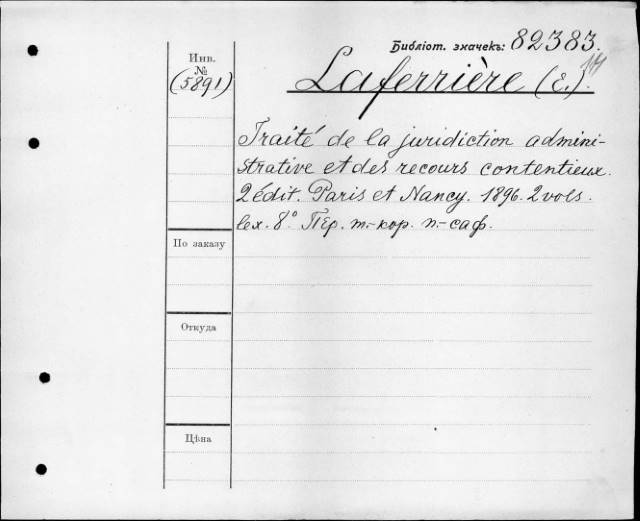 Библіот. значекъ: 82383.
Инв.
№
(5891)
Laferrière (E.).
Traité de la juridiction admini-
strative et des recours contentieux.
2 édit. Paris et Nancy. 1896. 2 vols.
lex. 8° Пер. т.-кор. п.-саф.
По заказу
Откуда
Цѣна